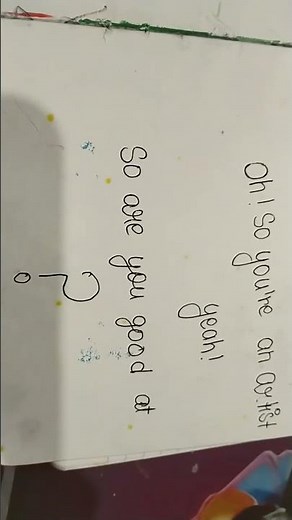 Oh! So you're an artist
yeah!
So are you good at
?